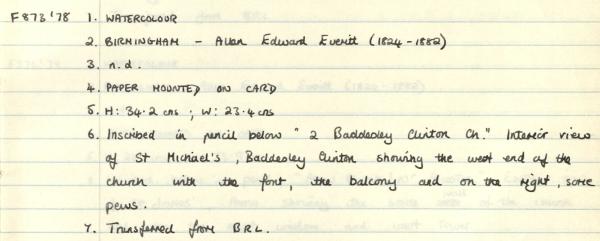 F873'78 1. WATERCOLOUR
2. BIRMINGHAM - Allan Edward Everitt (1824-1882)
3. n.d.
4. PAPER MOUNTED ON CARD
5. H: 34.2 cms ; W: 23.4 cms
6. Inscribed in pencil below "2 Baddesley Clinton Ch." Interior view
of St Michael's, Baddesley Clinton showing the west end of the
church with the font, the balcony and on the right, some
pews.
7. Transferred from B.R.L.